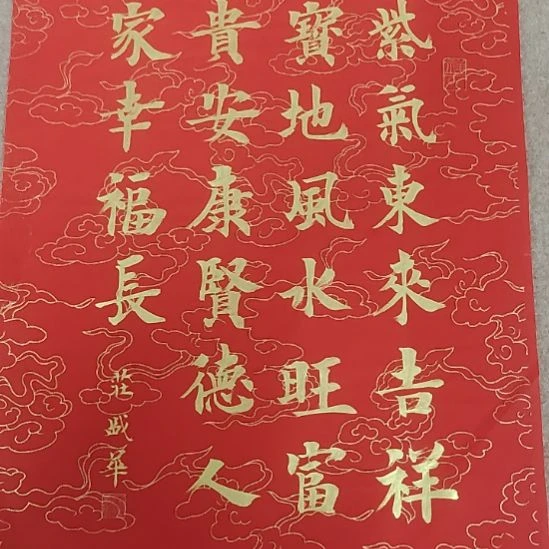 紫氣東來吉祥
寶地風水旺富
貴安康賢德人
家幸福長
莊盛華